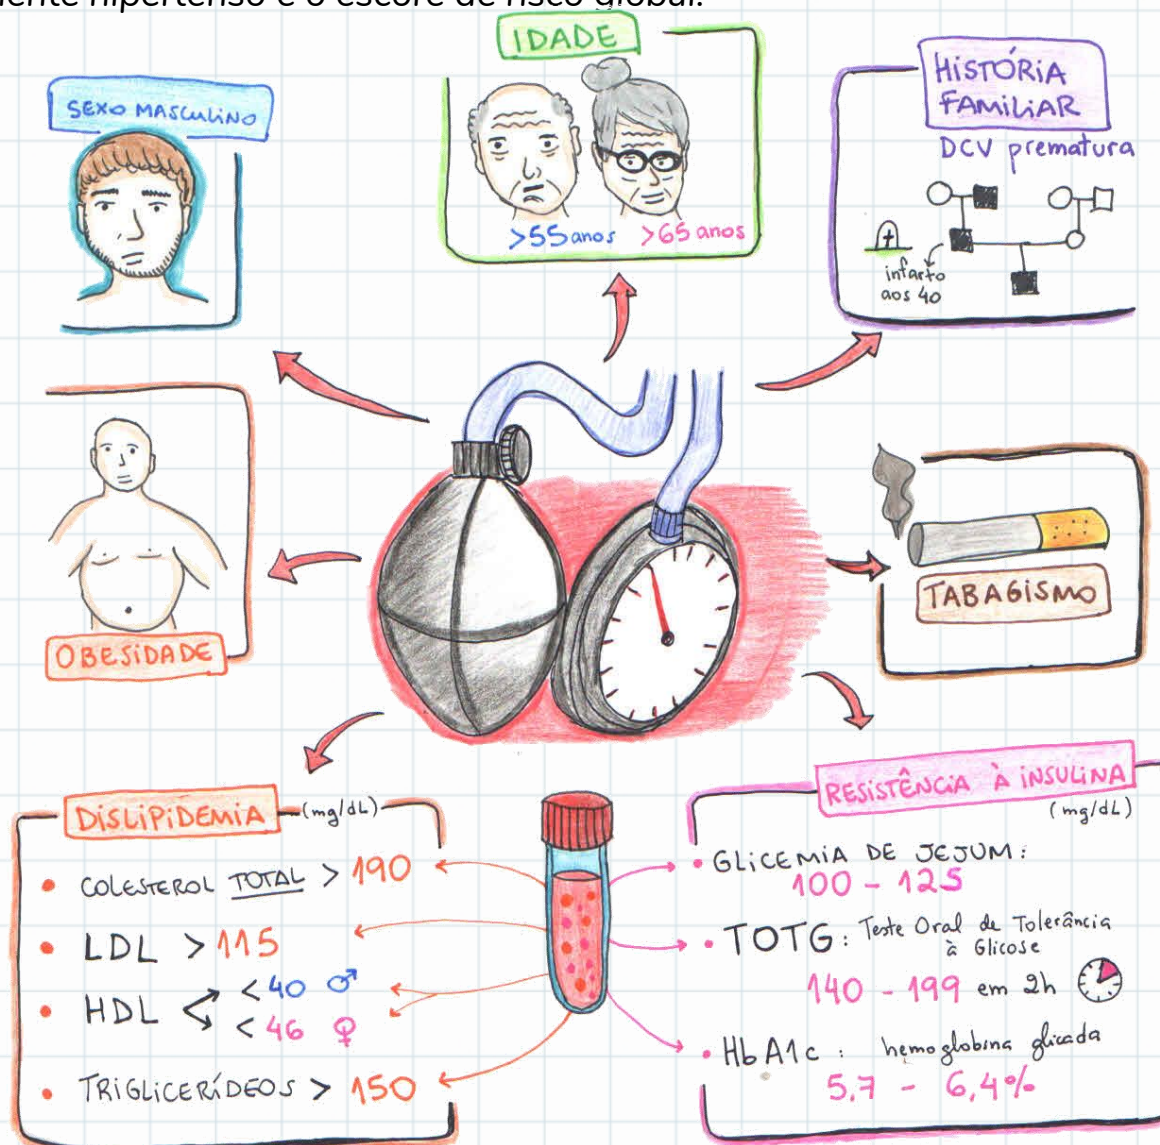 hipertenso e o escore de risco global.
IDADE
>55 anos >65 anos
SEXO MASCULINO
HISTÓRIA
FAMILIAR
DCV prematura
infarto
aos 40
OBESIDADE
TABAGISMO
DISLIPIDEMIA (mg/dL)
• COLESTEROL TOTAL > 190
• LDL > 115
• HDL < 40 ♂
< 46 ♀
• TRIGLICERÍDEOS > 150
RESISTÊNCIA À INSULINA
(mg/dL)
• GLICEMIA DE JEJUM:
100 - 125
• TOTG: Teste Oral de Tolerância
à Glicose
140 - 199 em 2h
• HbA1c: hemoglobina glicada
5,7 - 6,4%